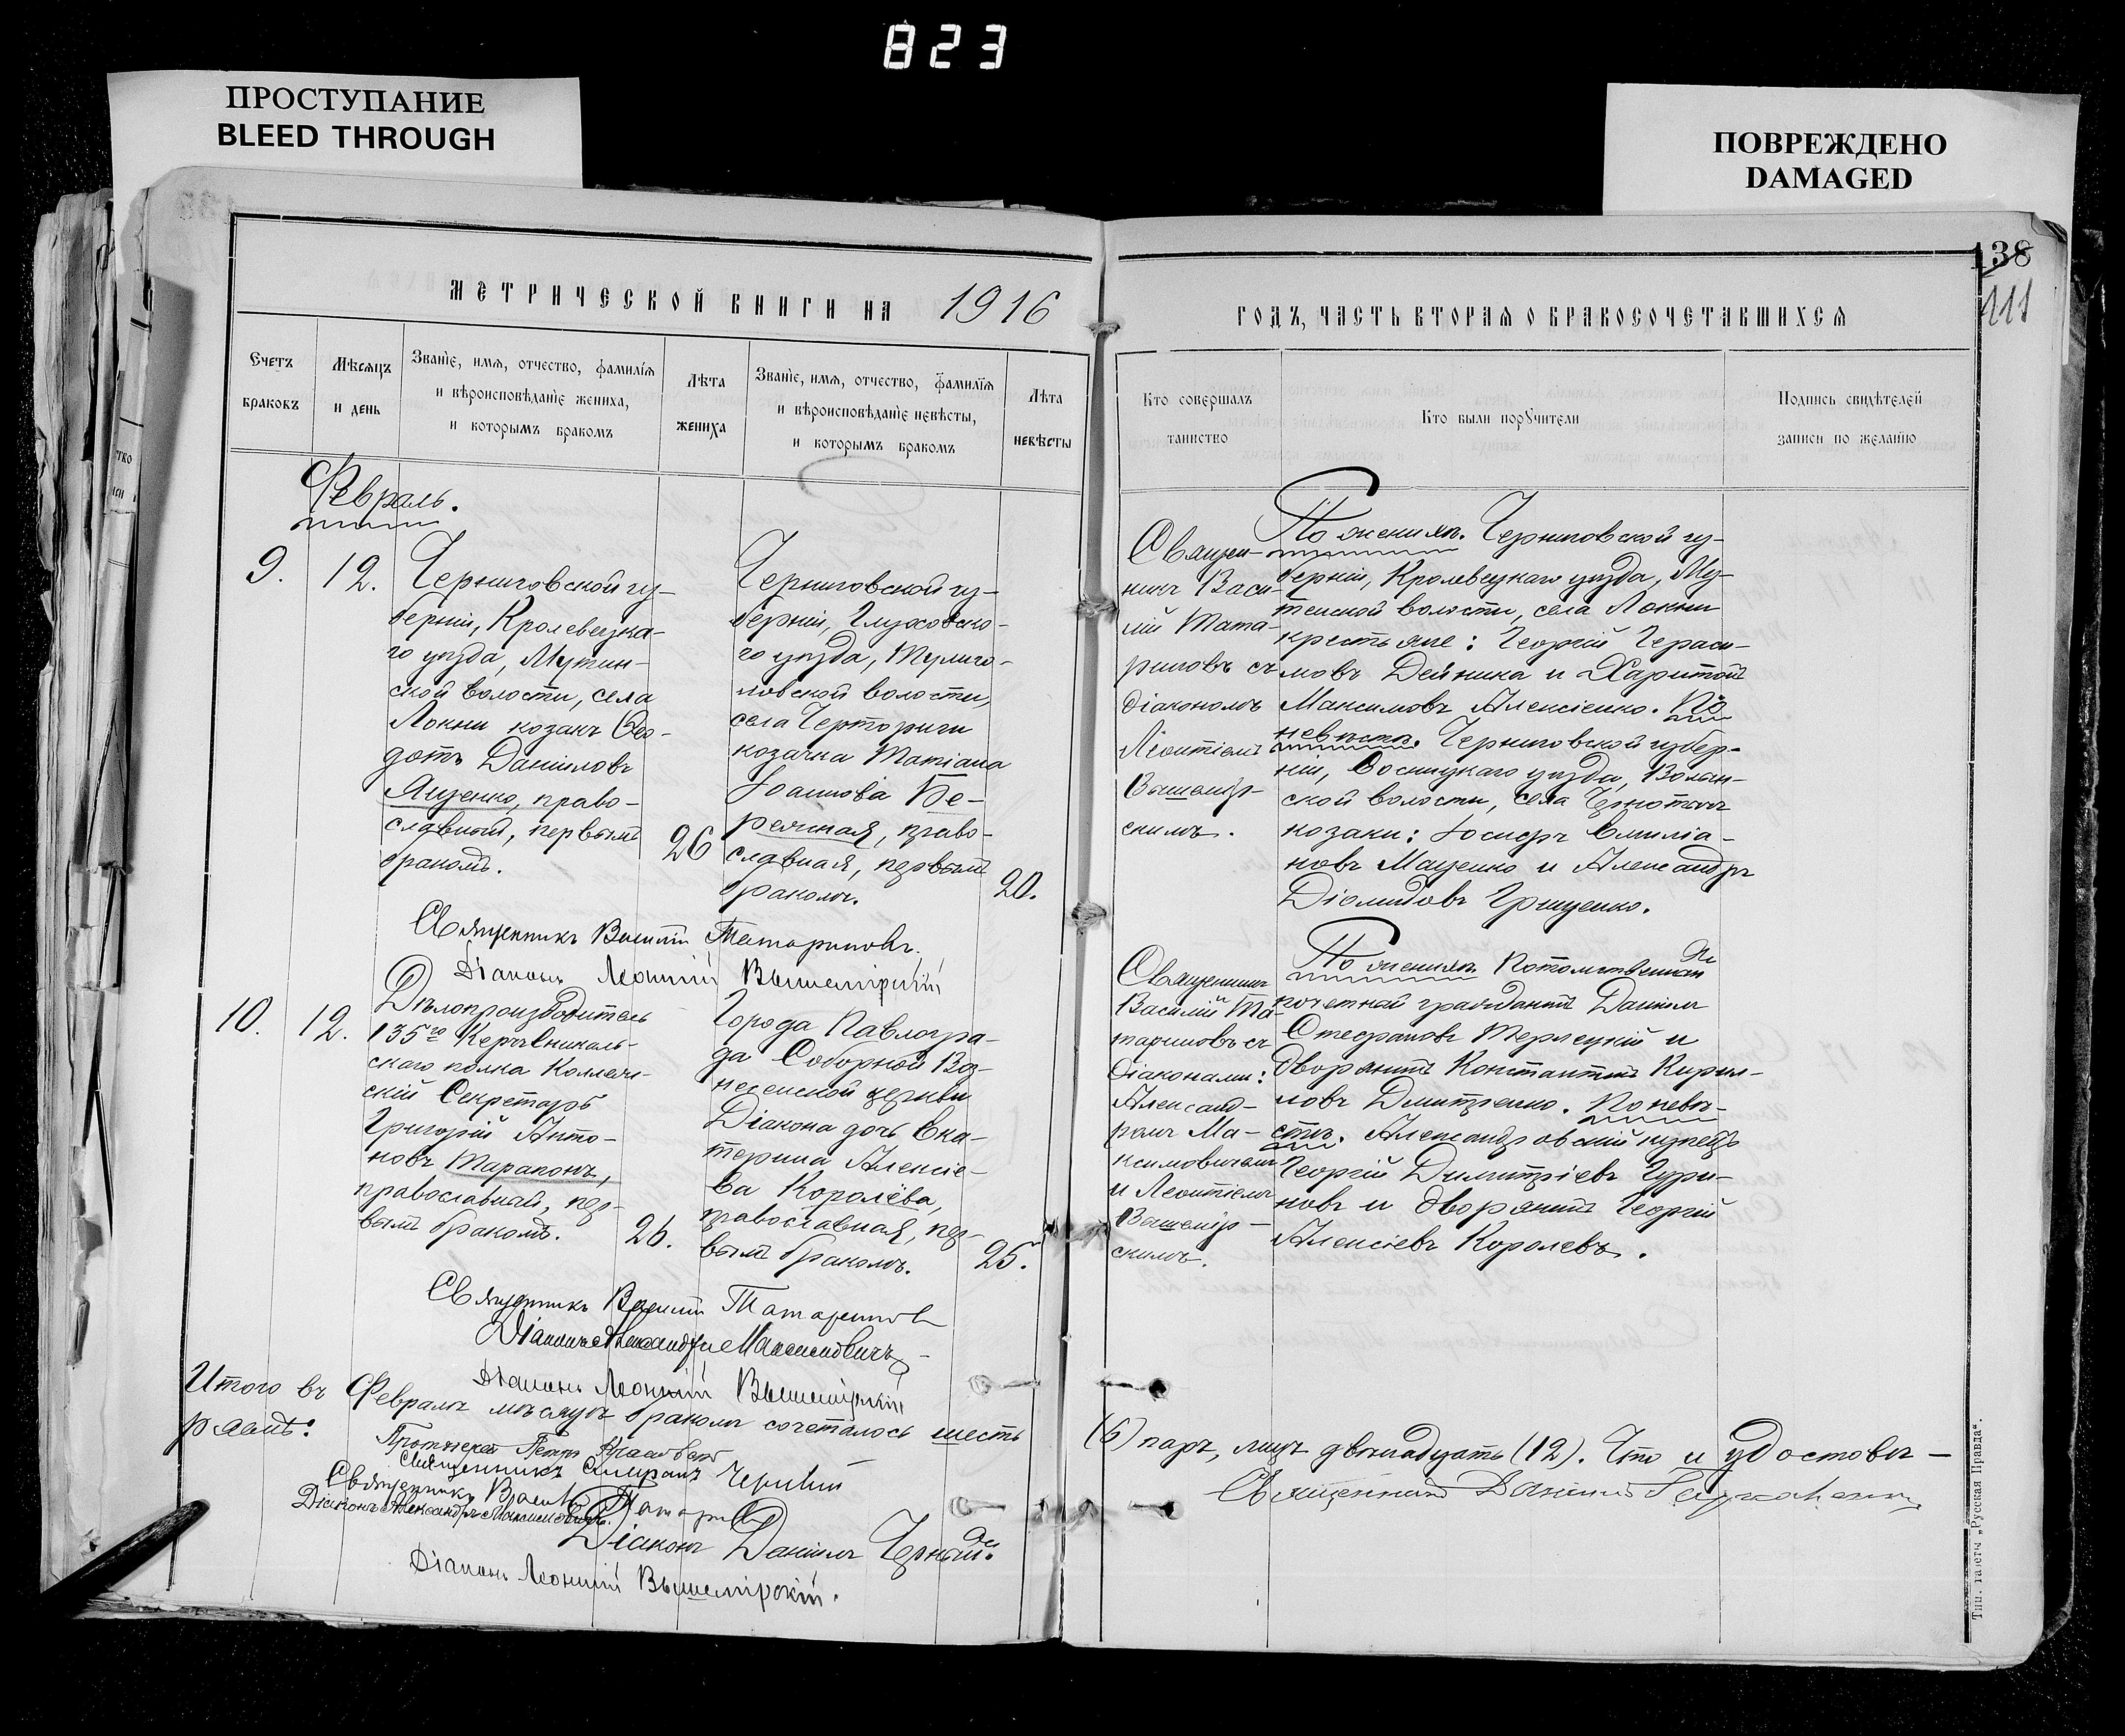 823
ПРОСТУПАНИЕ
BLEED THROUGH
ПОВРЕЖДЕНО
DAMAGED
138
111
МЕТРИЧЕСКОЙ КНИГИ НА 1916
ГОДЪ, ЧАСТЬ ВТОРАЯ О БРАКОСОЧЕТАВШИХСЯ
Счетъ
браковъ
Мѣсяцъ
и день
Званіе, имя, отчество, фамилія
и вѣроисповѣданіе жениха,
и которымъ бракомъ
Лѣта
жениха
Званіе, имя, отчество, фамилія
и вѣроисповѣданіе невѣсты,
и которымъ бракомъ
Лѣта
невѣсты
Кто совершалъ
таинство
Кто были поручители
Подпись свидѣтелей
записи по желанію
Февраль.
9.
12.
Черниговской гу-
берніи, Кролевецка-
го уѣзда, Мутин-
ской волости, села
Локни козакъ Ѳео-
дотъ Даніиловъ
Яценко, право-
славный, первымъ
бракомъ.
26
Черниговской гу-
берніи, Глуховско-
го уѣзда, Тулиго-
ловской волости,
села Чорториги
козачка Татіана
Іоаннова Бе-
речная, право-
славная, первымъ
бракомъ.
20.
Священ-
никъ Васи-
лій Тата-
риновъ съ
діакономъ
Леонтіемъ
Вышемір-
скимъ.
По женихѣ. Черниговской гу-
берніи, Кролевецкаго уѣзда, Му-
тинской волости, села Локни
крестьяне: Георгій Гераси-
мовъ Дейника и Харитонъ
Максимовъ Алексіенко. По
невѣстѣ. Черниговской губер-
ніи, Сосницкаго уѣзда, Волын-
ской волости, села
козаки: Іосифъ Емиліа-
новъ Маценко и Александръ
Діомидовъ Гриценко.
Священникъ Василій Татариновъ.
Діаконъ Леонтій Вышемірскій
10.
12.
Дѣлопроизводитель
135го Керчь-Еникаль-
скаго полка Коллеж-
скій Секретарь
Григорій Анто-
новъ Тарапонъ,
православный, пер-
вымъ бракомъ.
26.
Города Павлогра-
да Соборной Воз-
несенской церкви
Діакона дочь Ека-
терина Алексіе-
ва Королёва,
православная, пер-
вымъ бракомъ.
25.
Священникъ
Василій Та-
тариновъ съ
діаконами:
Александ-
ромъ Ма-
ксимовичемъ
и Леонтіемъ
Вышемір-
скимъ.
По женихѣ. Потомственный
почетный гражданинъ Даніилъ
Стефановъ Терлецкій и
дворянинъ Константинъ Кирил-
ловъ Дмитренко. По невѣ-
стѣ. Александровскій купецъ
Георгій Димитріевъ Гури-
новъ и дворянинъ Георгій
Алексіевъ Королевъ.
Священникъ Василій Татариновъ
Діаконъ Александръ Максимовичъ
Діаконъ Леонтій Вышемірскій
Итого въ Февралѣ мѣсяцѣ бракомъ сочеталось шесть
(6) паръ, лицъ двѣнадцать (12). Что и удостовѣ-
ряемъ:
Протоіерей Петръ
Священникъ
Священникъ Даніилъ
Священникъ Василій Татариновъ
Діаконъ Александръ Максимовичъ.
Діаконъ Даніилъ Черный.
Діаконъ Леонтій Вышемірскій.
Тип. газеты „Русская Правда“.